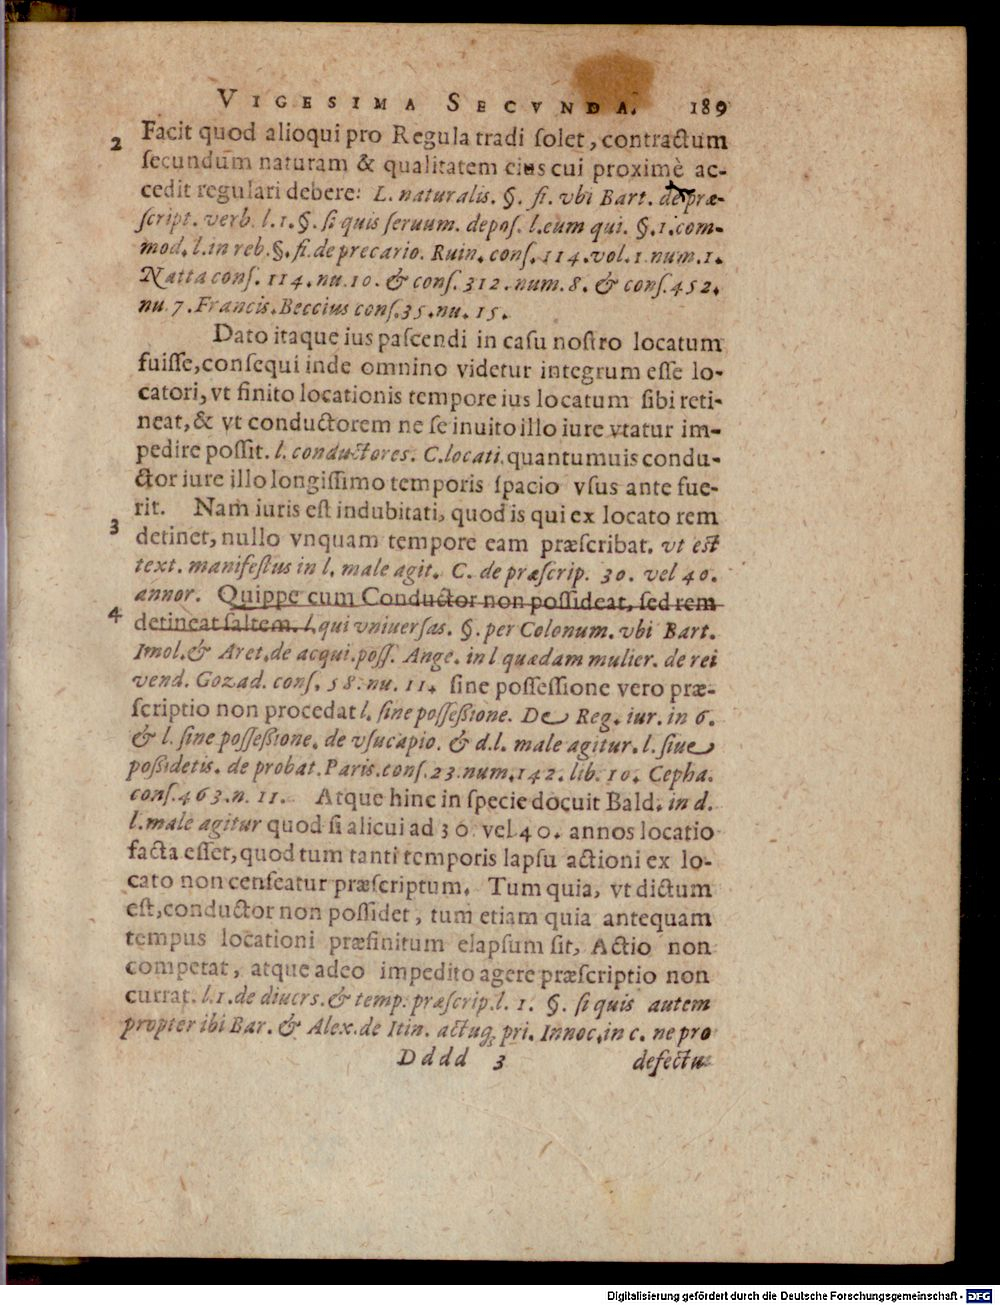 VIGESIMA SECVNDA. 189
2 Facit quod alioqui pro Regula tradi solet, contractum
secundum naturam & qualitatem eius cui proximè ac-
cedit regulari debere: L. naturalis. §. fi. vbi Bart. de præ-
script. verb. l. 1. §. si quis seruum. depos. l. eum qui. §. 1. com-
mod. l. in reb. §. fi. de precario. Ruin. cons. 114. vol. 1. num. 1.
Natta cons. 114. nu. 10. & cons. 312. num. 8. & cons. 452.
nu. 7. Francis. Beccius cons. 35. nu. 15.
Dato itaque ius pascendi in casu nostro locatum
fuisse, consequi inde omnino videtur integrum esse lo-
catori, vt finito locationis tempore ius locatum sibi reti-
neat, & vt conductorem ne se inuito illo iure vtatur im-
pedire possit. l. conductores. C. locati. quantumuis condu-
ctor iure illo longissimo temporis spacio vsus ante fue-
rit. Nam iuris est indubitati, quod is qui ex locato rem
3 detinet, nullo vnquam tempore eam præscribat. vt est
text. manifestus in l. male agit. C. de præscrip. 30. vel 40.
annor. Quippe cum Conductor non possideat, sed rem
4 detineat saltem. l. qui vniuersas. §. per Colonum. vbi Bart.
Imol. & Aret. de acqui. poss. Ange. in l quædam mulier. de rei
vend. Gozad. cons. 58. nu. 11. sine possessione vero præ-
scriptio non procedat l. sine possessione. De Reg. iur. in 6.
& l. sine possessione. de vsucapio. & d. l. male agitur. l. siue
possidetis. de probat. Paris. cons. 23. num. 142. lib. 10. Cepha.
cons. 463. n. 11. Atque hinc in specie docuit Bald. in d.
l. male agitur quod si alicui ad 30. vel 40. annos locatio
facta esset, quod tum tanti temporis lapsu actioni ex lo-
cato non censeatur præscriptum. Tum quia, vt dictum
est, conductor non possidet, tum etiam quia antequam
tempus locationi præfinitum elapsum sit, Actio non
competat, atque adeo impedito agere præscriptio non
currat. l. 1. de diuers. & temp. præscrip. l. 1. §. si quis autem
propter ibi Bar. & Alex. de Itin. actuq; pri. Innoc. in c. ne pro
Dddd 3 defectu
Digitalisierung gefördert durch die Deutsche Forschungsgemeinschaft - DFG